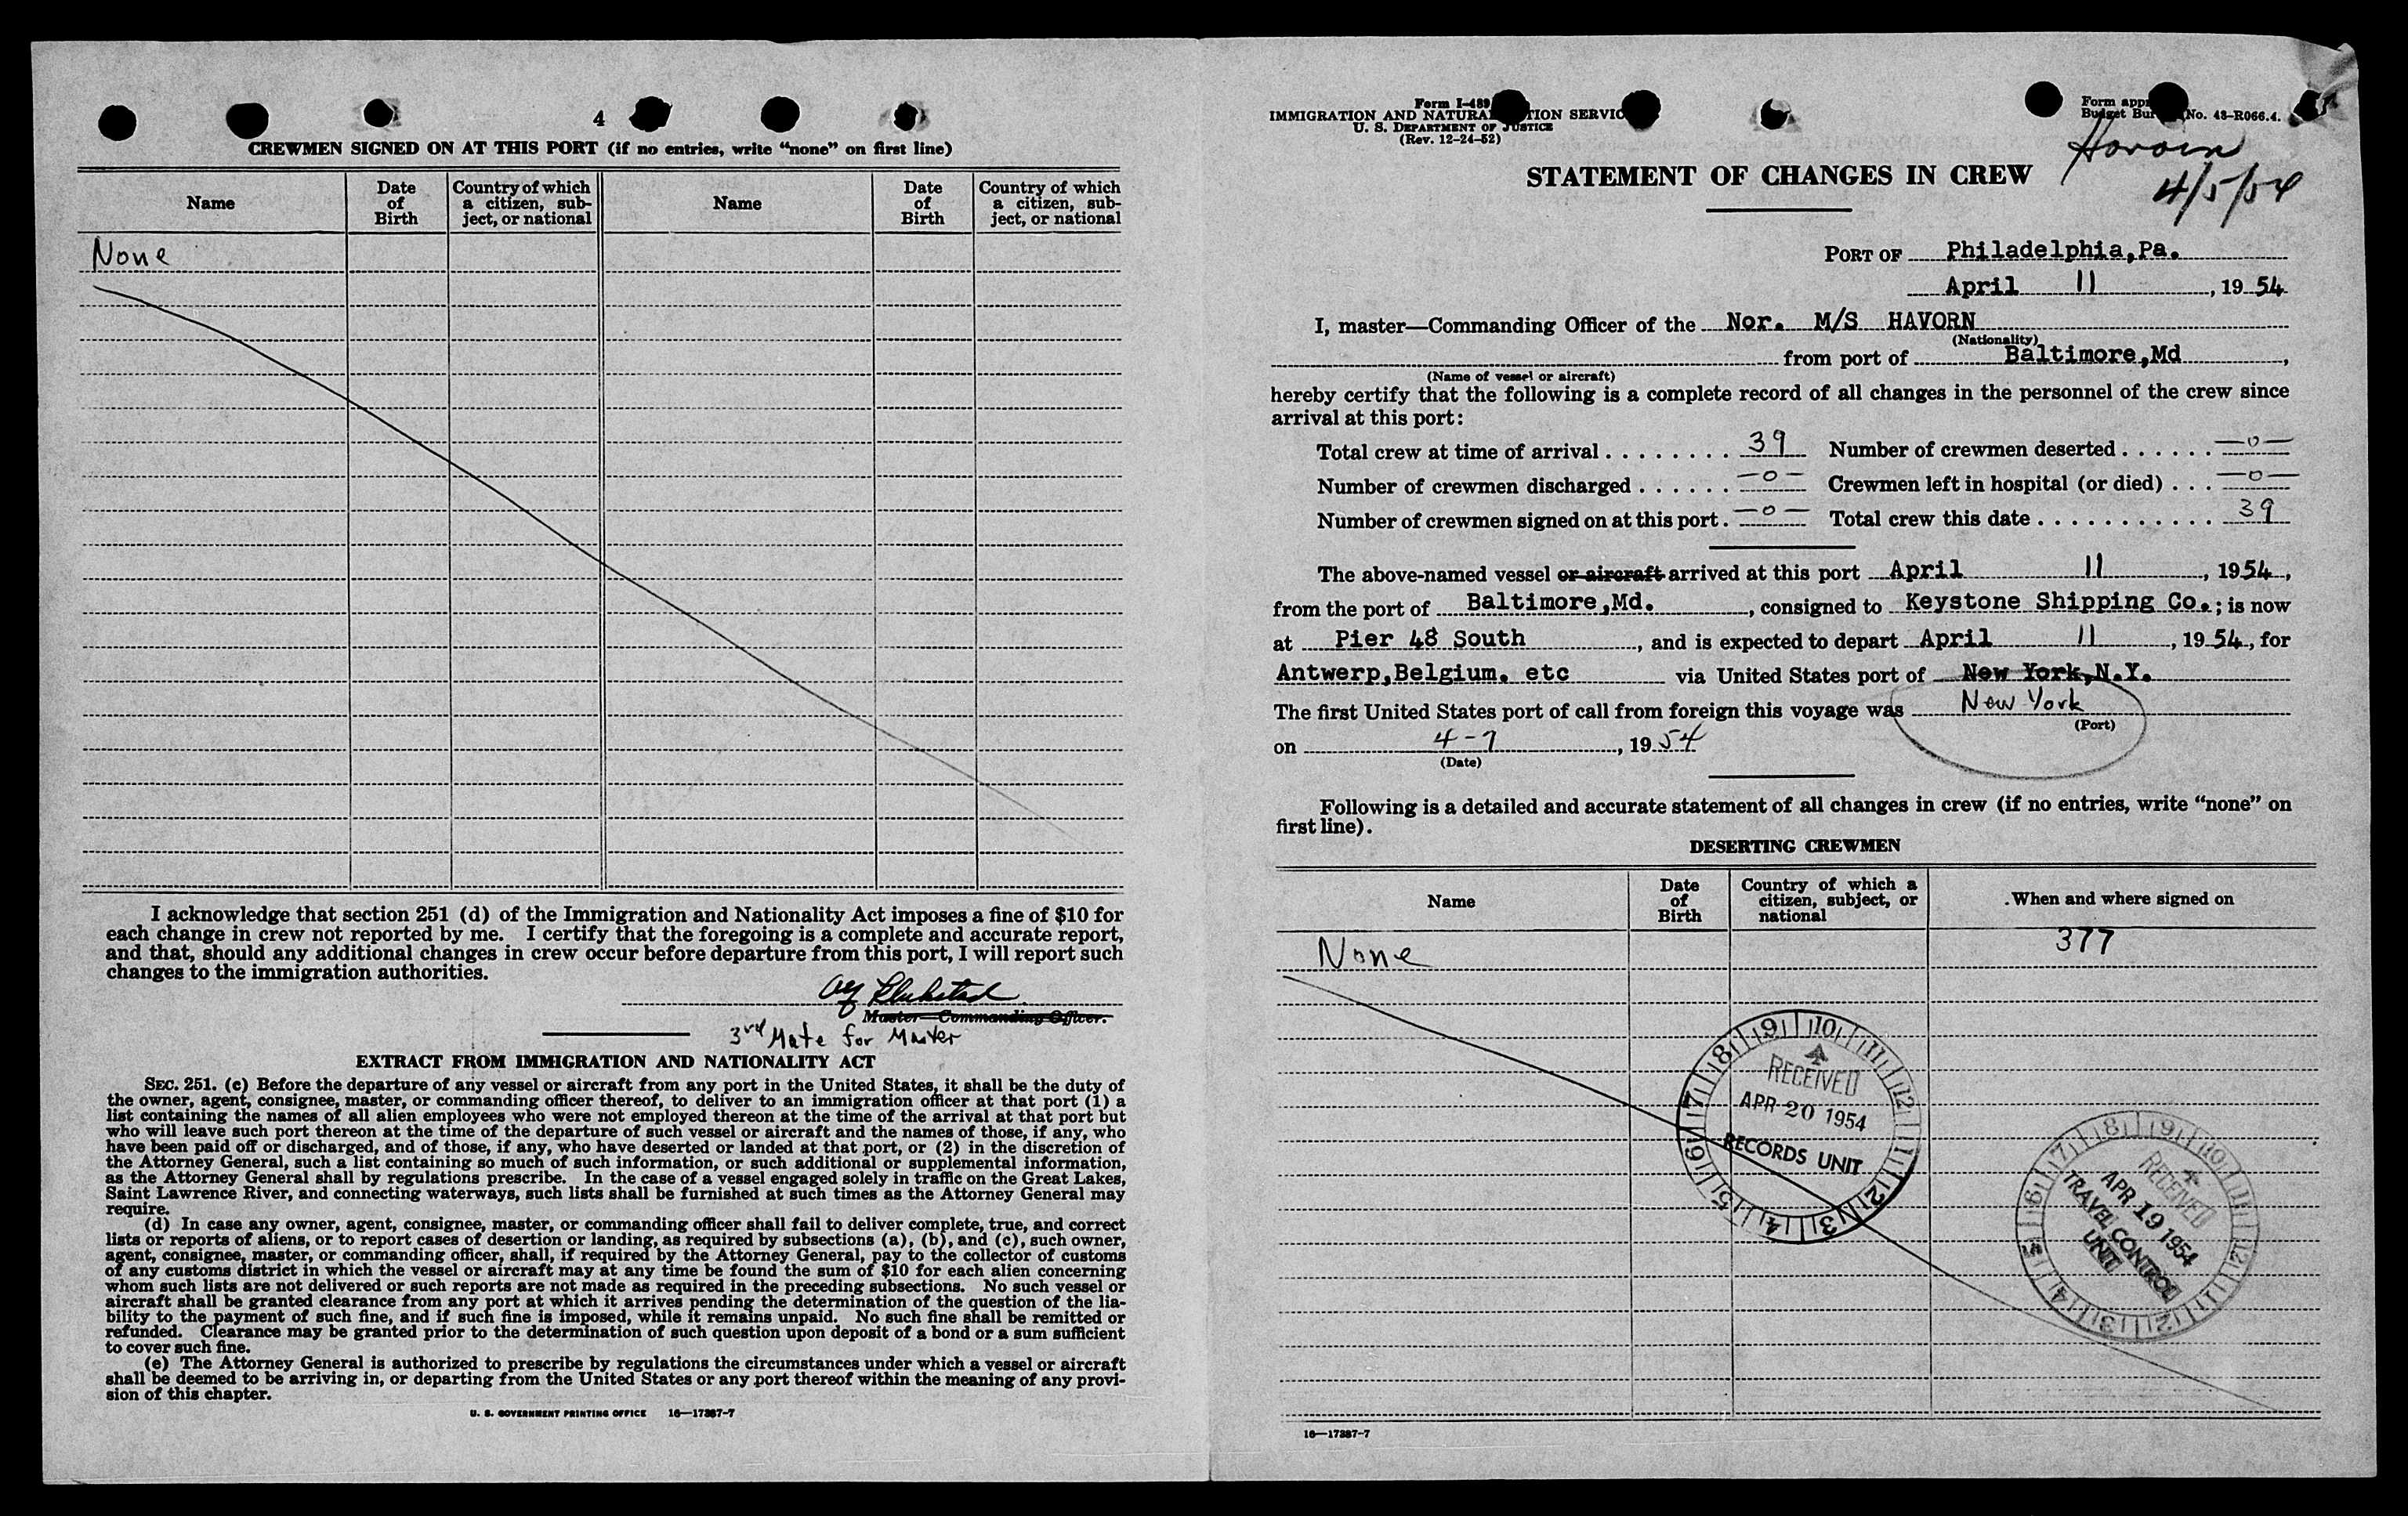 4
CREWMEN SIGNED ON AT THIS PORT (if no entries, write “none” on first line)
Name
Date of Birth
Country of which a citizen, subject, or national
Name
Date of Birth
Country of which a citizen, subject, or national
None
I acknowledge that section 251 (d) of the Immigration and Nationality Act imposes a fine of $10 for
each change in crew not reported by me. I certify that the foregoing is a complete and accurate report,
and that, should any additional changes in crew occur before departure from this port, I will report such
changes to the immigration authorities.
Master—Commanding Officer.
3rd Mate for Master
EXTRACT FROM IMMIGRATION AND NATIONALITY ACT
SEC. 251. (c) Before the departure of any vessel or aircraft from any port in the United States, it shall be the duty of
the owner, agent, consignee, master, or commanding officer thereof, to deliver to an immigration officer at that port (1) a
list containing the names of all alien employees who were not employed thereon at the time of the arrival at that port but
who will leave such port thereon at the time of the departure of such vessel or aircraft and the names of those, if any, who
have been paid off or discharged, and of those, if any, who have deserted or landed at that port, or (2) in the discretion of
the Attorney General, such a list containing so much of such information, or such additional or supplemental information,
as the Attorney General shall by regulations prescribe. In the case of a vessel engaged solely in traffic on the Great Lakes,
Saint Lawrence River, and connecting waterways, such lists shall be furnished at such times as the Attorney General may
require.
(d) In case any owner, agent, consignee, master, or commanding officer shall fail to deliver complete, true, and correct
lists or reports of aliens, or to report cases of desertion or landing, as required by subsections (a), (b), and (c), such owner,
agent, consignee, master, or commanding officer, shall, if required by the Attorney General, pay to the collector of customs
of any customs district in which the vessel or aircraft may at any time be found the sum of $10 for each alien concerning
whom such lists are not delivered or such reports are not made as required in the preceding subsections. No such vessel or
aircraft shall be granted clearance from any port at which it arrives pending the determination of the question of the lia-
bility to the payment of such fine, and if such fine is imposed, while it remains unpaid. No such fine shall be remitted or
refunded. Clearance may be granted prior to the determination of such question upon deposit of a bond or a sum sufficient
to cover such fine.
(e) The Attorney General is authorized to prescribe by regulations the circumstances under which a vessel or aircraft
shall be deemed to be arriving in, or departing from the United States or any port thereof within the meaning of any provi-
sion of this chapter.
U. S. GOVERNMENT PRINTING OFFICE 16—17387-7
Form I-489
IMMIGRATION AND
U. S. DEPARTMENT OF JUSTICE
(Rev. 12-24-52)
Form
Budget No. 43-R066.4.
4/5/54
STATEMENT OF CHANGES IN CREW
PORT OF Philadelphia,Pa.
April 11, 1954
I, master—Commanding Officer of the Nor. M/S HAVORN
(Nationality)
from port of Baltimore,Md,
(Name of vessel or aircraft)
hereby certify that the following is a complete record of all changes in the personnel of the crew since
arrival at this port:
Total crew at time of arrival........ 39 Number of crewmen deserted...... —0—
Number of crewmen discharged...... —0— Crewmen left in hospital (or died)... —0—
Number of crewmen signed on at this port. —0— Total crew this date............ 39
The above-named vessel or aircraft arrived at this port April 11, 1954,
from the port of Baltimore,Md., consigned to Keystone Shipping Co.; is now
at Pier 48 South, and is expected to depart April 11, 1954, for
Antwerp,Belgium. etc via United States port of New York,N.Y.
The first United States port of call from foreign this voyage was New York
(Port)
on 4-7, 1954
(Date)
Following is a detailed and accurate statement of all changes in crew (if no entries, write “none” on
first line).
DESERTING CREWMEN
Name
Date of Birth
Country of which a citizen, subject, or national
When and where signed on
None
377
RECEIVED
APR 20 1954
RECORDS UNIT
RECEIVED
APR 19 1954
TRAVEL CONTROL
UNIT
16—17387-7